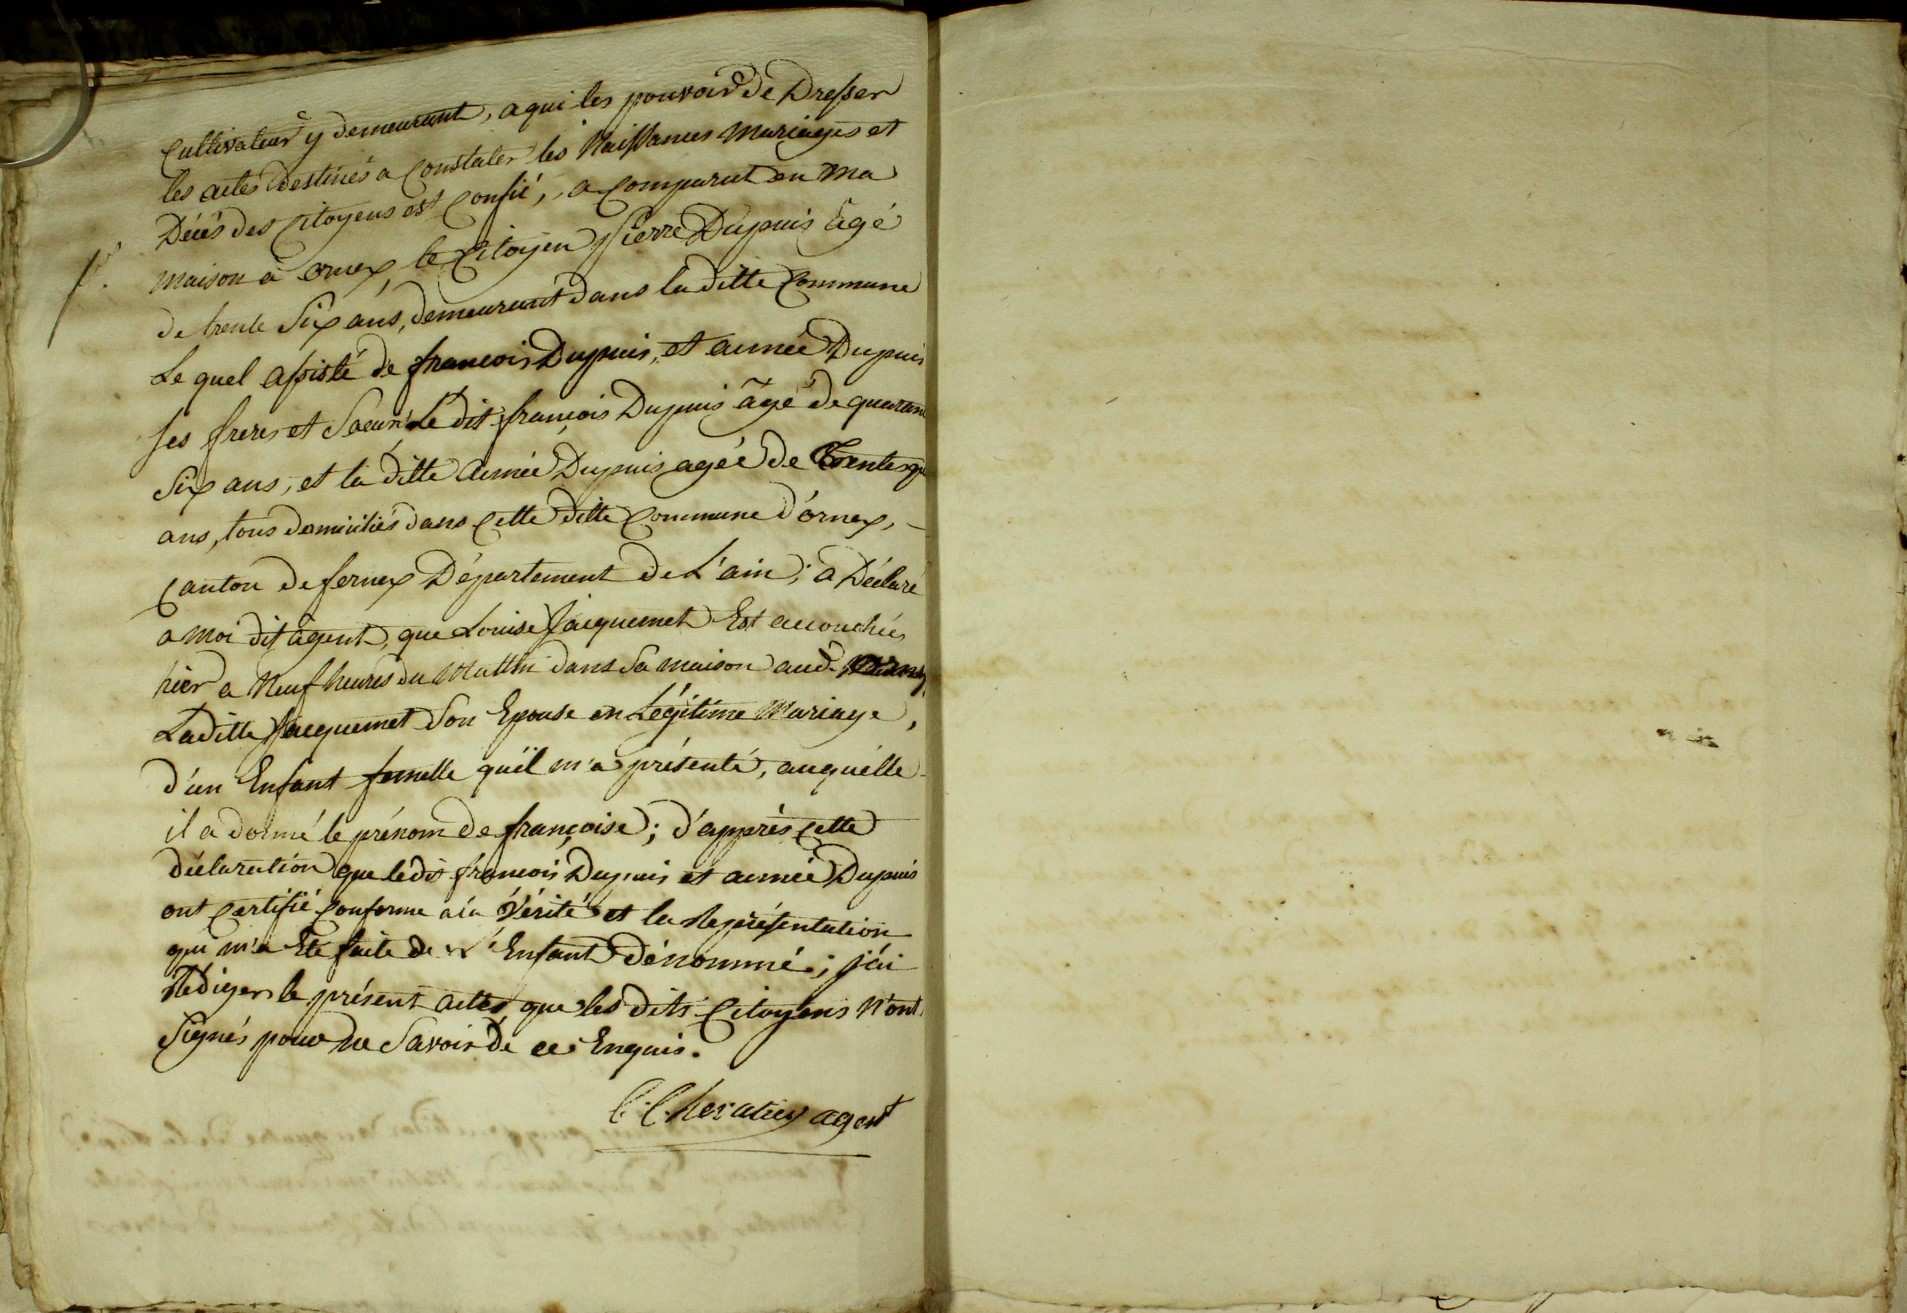 Cultivateur y demeurant, a qui les pouvoir de Dresser
les actes destinés a Constater les Naissances Mariages et
Décés des Citoyens est Confié, a Comparut en Ma
Maison à ornex, le Citoyen Pierre Dupuis âgé
de trente Six ans, demeurant dans la ditte Commune
Le quel assisté de francois Dupuis, et aimée Dupuis
ses freres et Soeur Le dit françois Dupuis âgé de quarante
Six ans, et la ditte aimée Dupuis agéé de Trente
ans, tous domiciliés dans Cette ditte Commune d'ornex,
Canton de fernex Département de L'ain; a Déclaré
a Moi dit agent, que Louise Jacquemet Est accouchée
hier a Neuf heures du Mattin dans Sa maison aud.
Laditte Jacquemet Son Epouse en Légitime Mariage,
d'un Enfant femelle qu'il m'a présenté, auquélle
il a donné le prénom de françoise; d'apprès Cette
déclaration que ledit francois Dupuis et aimée Dupuis
ont Certifié Conforme a la Vérité et la Représentation
qui m'a Eté faite de L'Enfant dénommé; j'ai
Rédiger le présent actes que les dits Citoyens N'ont
Signés pour ne Savoir de ce Enquis.
C. Chevatier agent